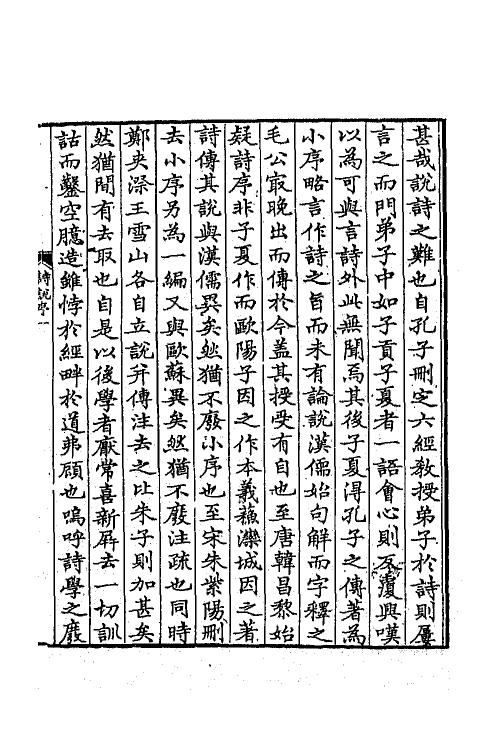 甚哉說詩之難也自孔子刪定六經教授弟子於詩則屢
言之而門弟子中如子貢子夏者一語會心則反覆興嘆
以為可與言詩外此無聞焉其後子夏得孔子之傳著為
小序略言作詩之旨而未有論說漢儒始句解而字釋之
毛公㝡晚出而傳於今蓋其授受有自也至唐韓昌黎始
疑詩序非子夏作而歐陽子因之作本義蘓灤城因之著
詩傳其說與漢儒異矣然猶不廢小序也至宋朱紫陽刪
去小序另為一編又與歐蘇異矣然猶不廢注疏也同時
鄭夹漈王雪山各自立說并傳注去之比朱子則加甚矣
然猶間有去取也自是以後學者厭常喜新屏去一切訓
詁而鑿空臆造雖悖於經畔於道弗顧也嗚呼詩學之廢
詩說序 一